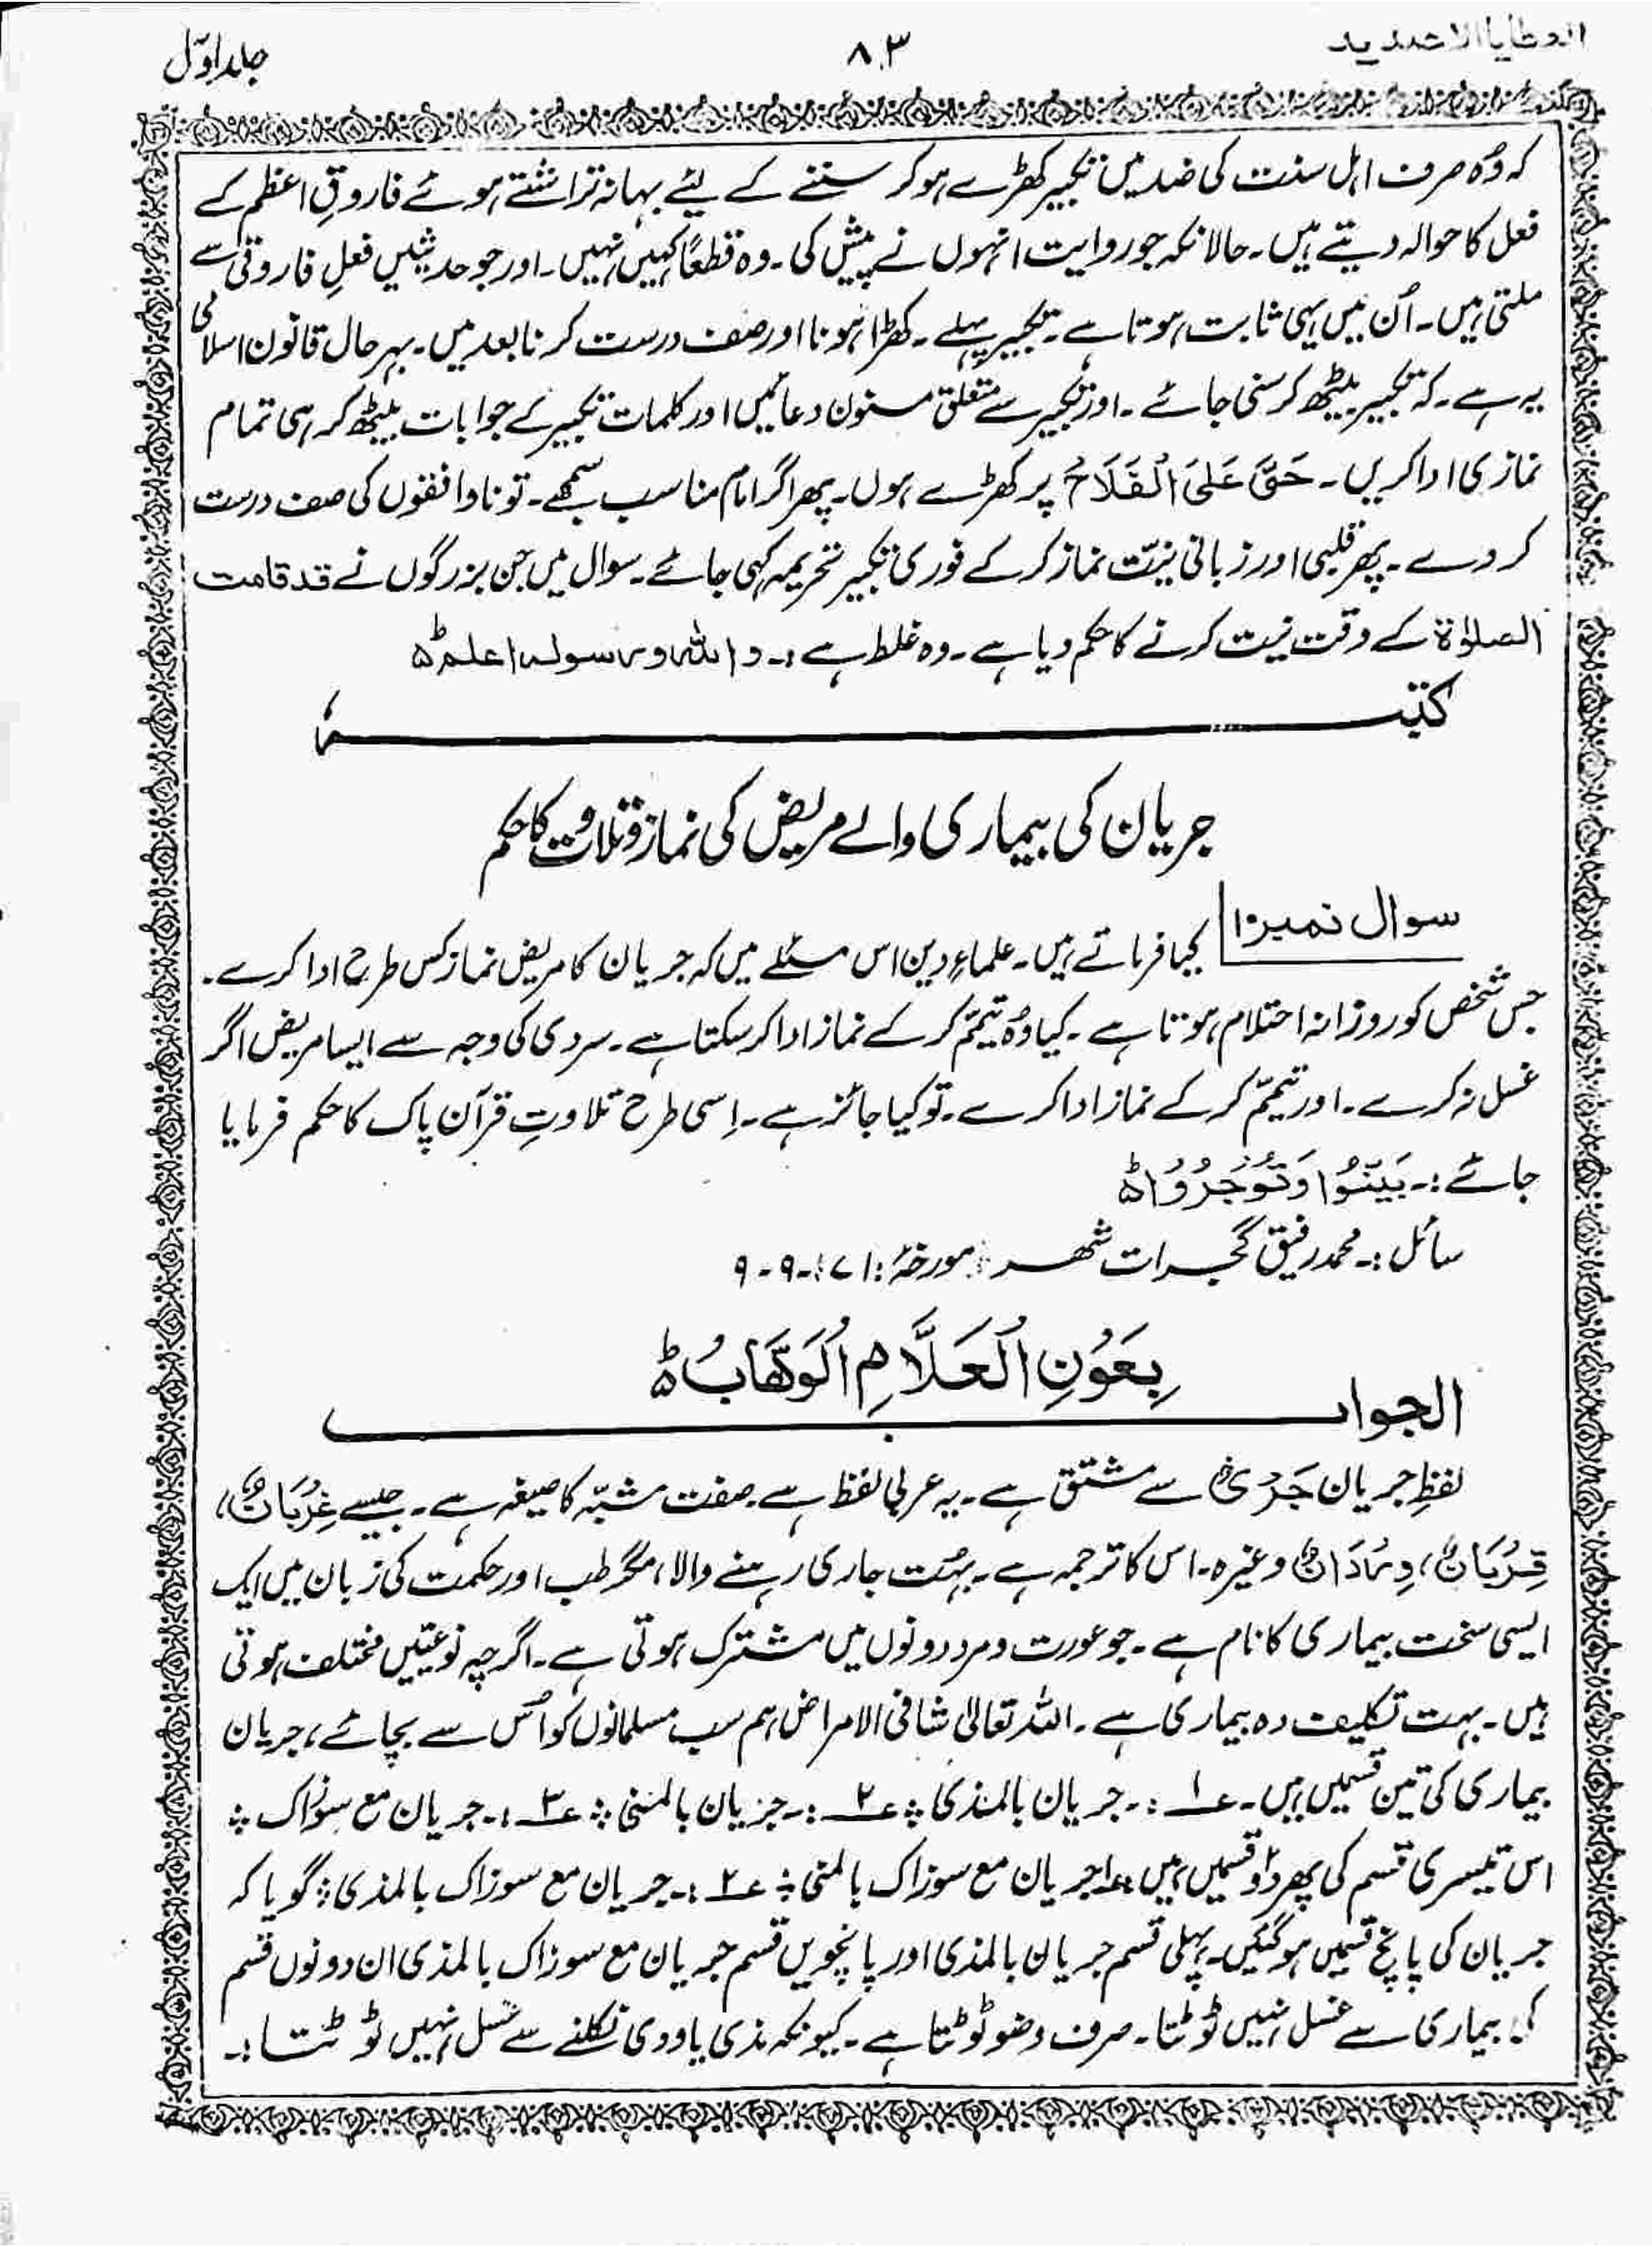 العطایا الاحمدیہ ۸۳ جلد اوّل
کہ وُہ صرف اہل سنت کی ضد میں تکبیر کھڑے ہو کر سننے کے لیئے بہانہ تراشتے ہوئے فاروقِ اعظم کے
فعل کا حوالہ دیتے ہیں۔ حالانکہ جو روایت انہوں نے پیش کی۔ وہ قطعاً کہیں نہیں۔ اور جو حدیثیں فعلِ فاروقی سے
ملتی ہیں۔ اُن میں یہی ثابت ہوتا ہے۔ تکبیر پہلے۔ کھڑا ہونا اور صف درست کرنا بعد میں۔ بہر حال قانون اسلامی
یہ ہے۔ کہ تکبیر بیٹھ کر سنی جائے۔ اور تکبیر سے متعلق مسنون دعائیں اور کلمات تکبیر کے جوابات بیٹھ کر ہی تمام
نمازی ادا کریں۔ حَیَّ عَلَی الْفَلَاحُ پر کھڑے ہوں۔ پھر اگر امام مناسب سمجھے۔ تو ناواقفوں کی صف درست
کر دے۔ پھر قلبی اور زبانی نیّت نماز کر کے فوری تکبیر تحریمہ کہی جائے۔ سوال میں جن بزرگوں نے قد قامت
الصلوٰۃ کے وقت نیت کرنے کا حکم دیا ہے۔ وہ غلط ہے :۔ واللہ ورسولہ اعلم ہ
کتبـــہٗ
جریان کی بیماری والے مریض کی نماز و تلاوت کا حکم
سوال نمبر ۱۰ کیا فرماتے ہیں۔ علماءِ دین اس مسئلے میں کہ جریان کا مریض نماز کس طرح ادا کرے۔
جس شخص کو روزانہ احتلام ہوتا ہے۔ کیا وُہ تیمّم کر کے نماز ادا کر سکتا ہے۔ سردی کی وجہ سے ایسا مریض اگر
غسل نہ کرے۔ اور تیمّم کر کے نماز ادا کرے۔ تو کیا جائز ہے۔ اِسی طرح تلاوتِ قرآن پاک کا حکم فرمایا
جائے :۔ بَیِّنُوْا وَتُوْجَرُوْا ہ
سائل :۔ محمد رفیق گجرات شہر : مورخہٗ : ۷۱-۹-۹
بِعَوْنِ الْعَلَّامِ الْوَھَّابُ ہ
الجواب
لفظِ جریان جَرْیٌ سے مشتق ہے۔ یہ عربی لفظ ہے۔ صفت مشبّہ کا صیغہ ہے۔ جیسے غِرْبَانٌ،
قِرْبَانٌ، وِرْدَانٌ وغیرہ۔ اس کا ترجمہ ہے۔ بہُت جاری رہنے والا، مگر طب اور حکمت کی زبان میں ایک
ایسی سخت بیماری کا نام ہے۔ جو عورت و مرد دونوں میں مشترک ہوتی ہے۔ اگرچہ نوعیتیں مختلف ہوتی
ہیں۔ بہت تکلیف دہ بیماری ہے۔ اللہ تعالیٰ شافی الامراض ہم سب مسلمانوں کو اُس سے بچائے، جریان
بیماری کی تین قسمیں ہیں۔ ؏۱ :۔ جریان بالمذی ؞ ؏۲ :۔ جریان بالمنی ؞ ؏۳ :۔ جریان مع سوزاک ؞
اس تیسری قسم کی پھر دوْ قسمیں ہیں ؏۱ جریان مع سوزاک بالمنی ؞ ؏۲ :۔ جریان مع سوزاک بالمذی ؞ گویا کہ
جریان کی پانچ قسمیں ہو گئیں۔ پہلی قسم جریان بالمذی اور پانچویں قسم جریان مع سوزاک بالمذی ان دونوں قسم
کی بیماری سے غسل نہیں ٹوٹتا۔ صرف وضو ٹوٹتا ہے۔ کیونکہ مذی یا ودی نکلنے سے غسل نہیں ٹوٹتا :۔